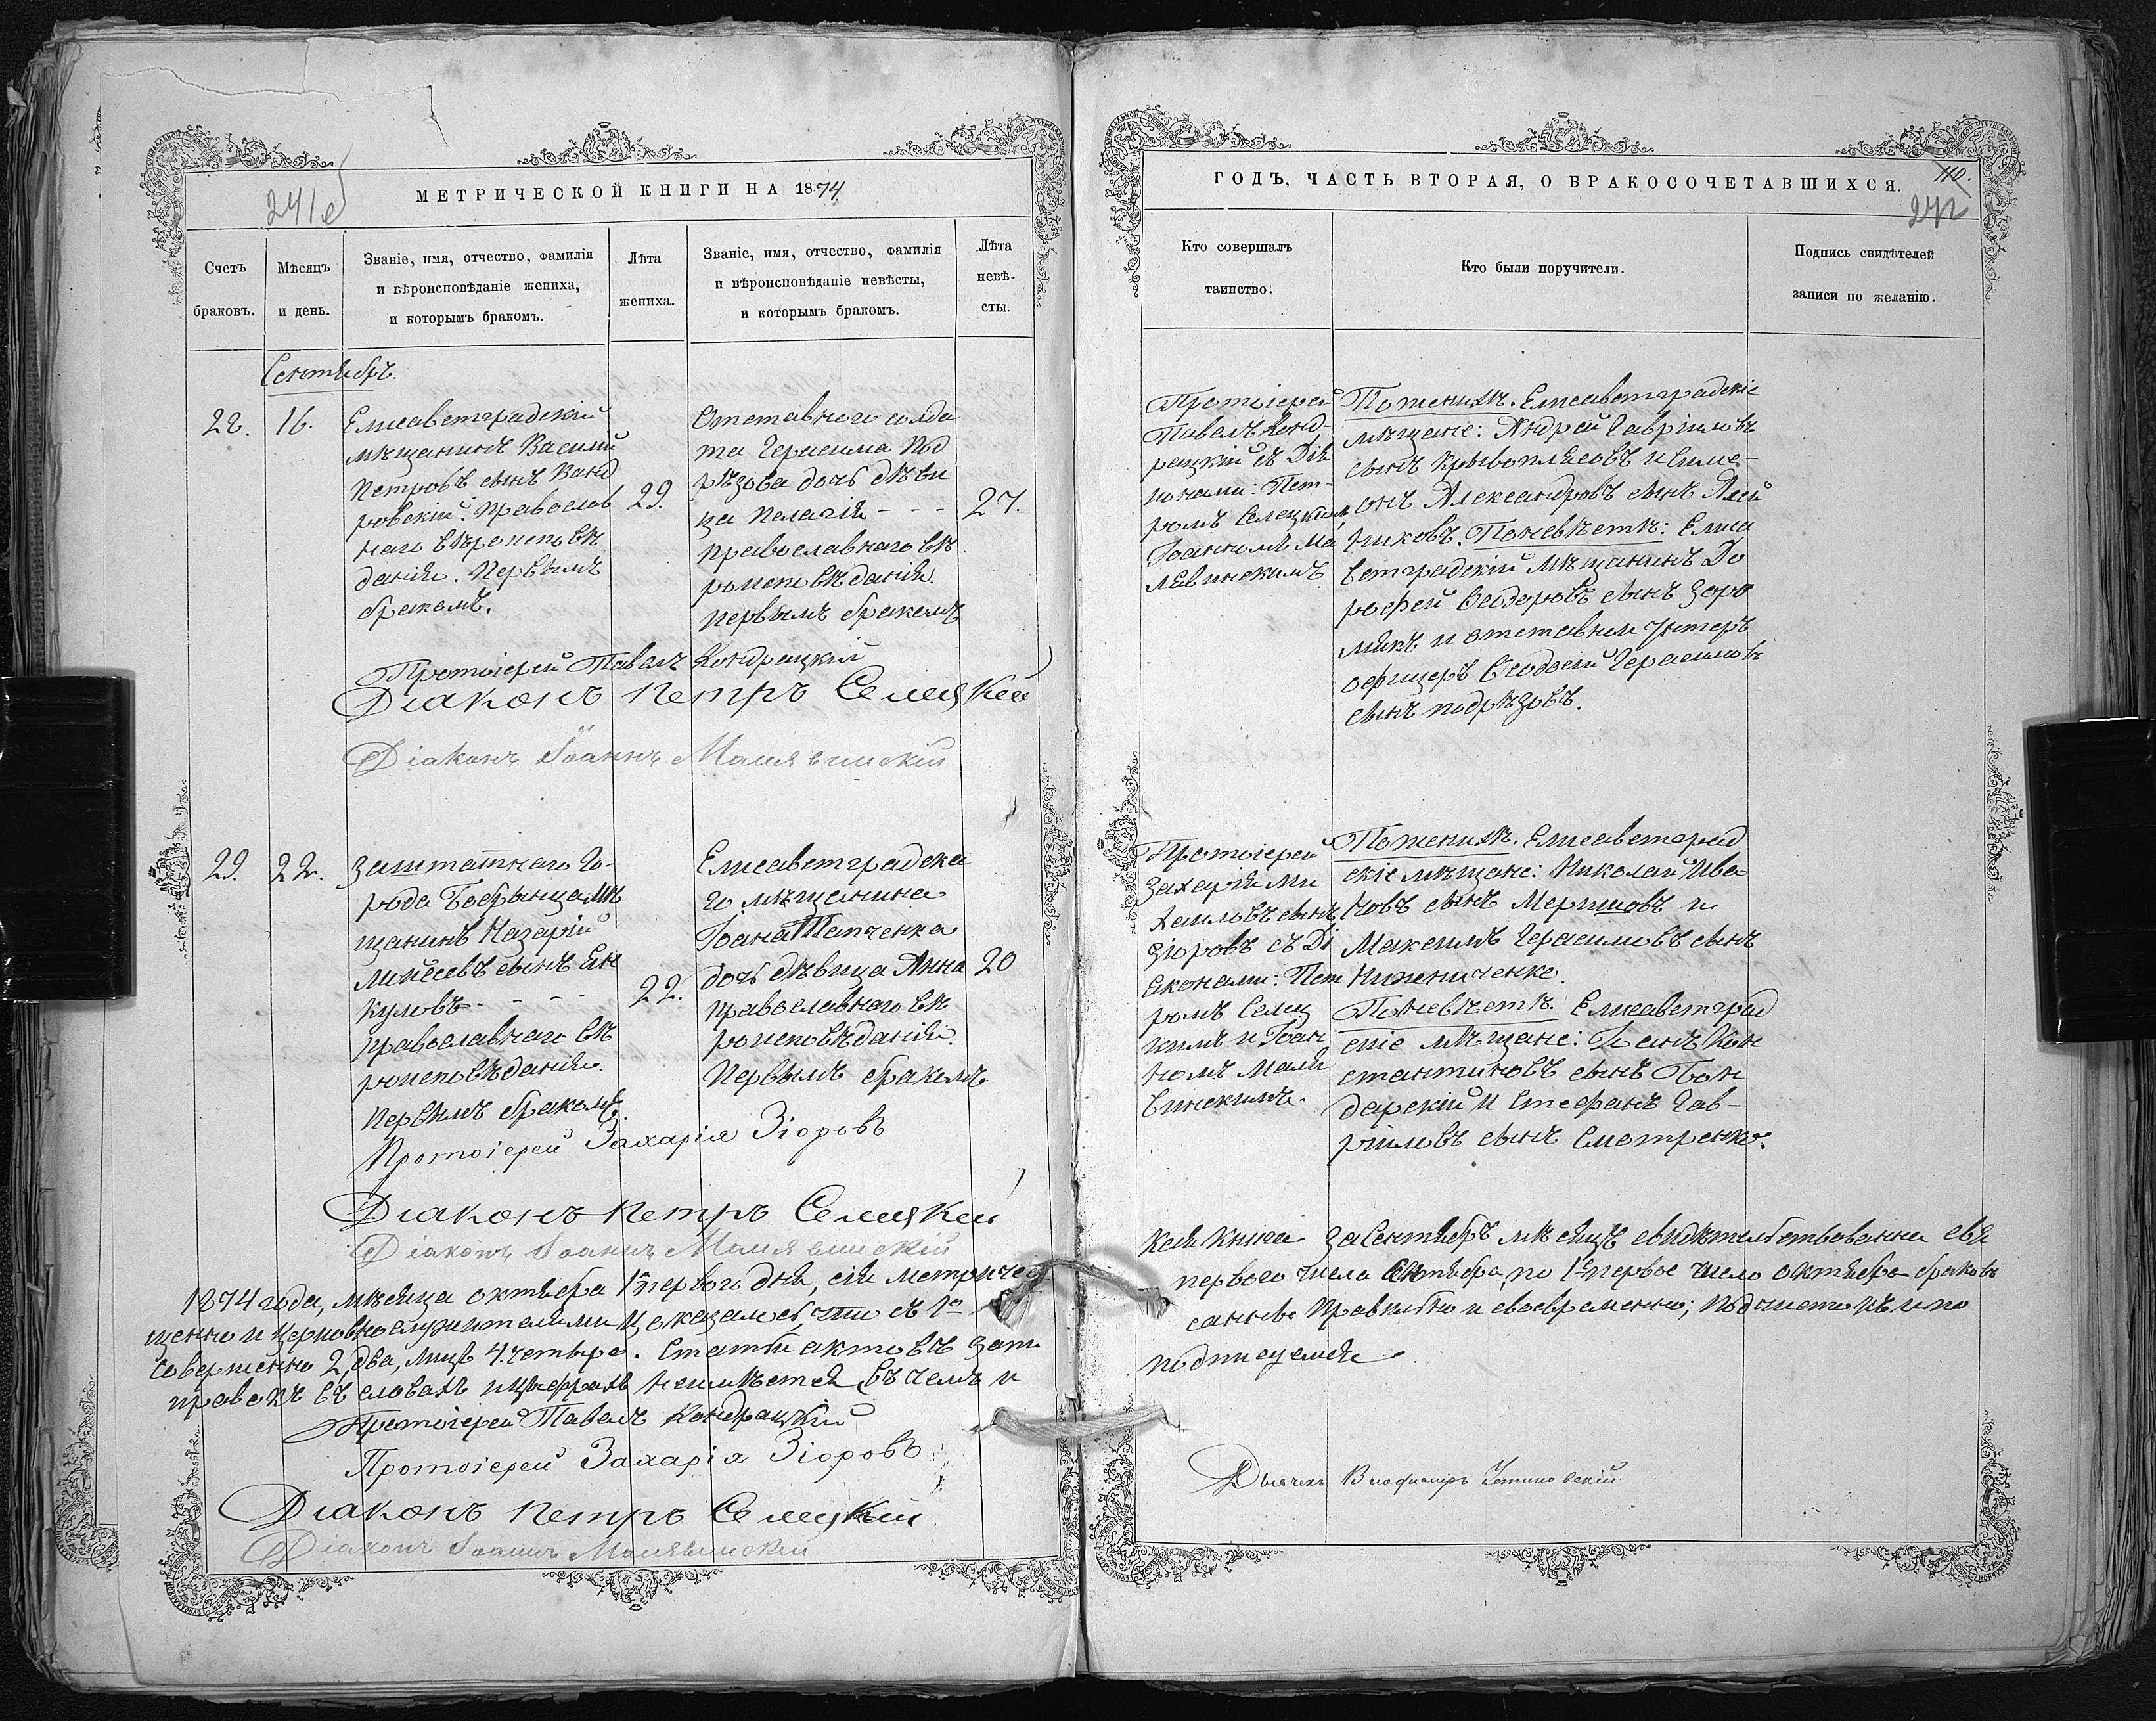 МЕТРИЧЕСКОЙ КНИГИ НА 1874
241 об
Счетъ
браковъ.
Мѣсяцъ
и день.
Званіе, имя, отчество, фамилія
и вѣроисповѣданіе жениха,
и которымъ бракомъ.
Лѣта
жениха.
Званіе, имя, отчество, фамилія
и вѣроисповѣданіе невѣсты,
и которымъ бракомъ.
Лѣта
невѣ-
сты.
Сентябрь.
22.
16.
Елисаветградскій
мѣщанинъ Василій
Петровъ сынъ
ровскій. Православ
наго вѣроисповѣ
данія. Первымъ
бракомъ.
29.
Отставнаго солда
та Герасима Под
рѣзова дочь дѣви
ца Пелагія - - -
православнаго вѣ
роисповѣданія.
первымъ бракомъ
27.
Протоіерей Павелъ Кондрацкій
Діаконъ Петръ Селецкій
Діаконъ Іоаннъ Малявинскій
23.
22.
Заштатнаго Го-
рода Бобринца мѣ
щанинъ Назарій
Моисеевъ сынъ
куловъ - - - -
православнаго вѣ
роисповѣданія.
Первымъ бракомъ.
22.
Елисаветградска
го мѣщанина
Іоана
дочь дѣвица Анна
православнаго вѣ
роисповѣданія.
Первымъ бракомъ
20
Протоіерей Захарія Зіоровъ
Діаконъ Петръ Селецкій
Діаконъ Іоаннъ Малявинскій
1874 года, мѣсяца октября 1го перваго дня, сія метричес
щенно и церковнослужителями и оказалось, что съ 1го
совершенно 2, два, лицъ 4. четыре. Статьи актовъ запи
правокъ въ словахъ и цыфрахъ неимѣется въ чемъ и
Протоіерей Павелъ Кондрацкій
Протоіерей Захарія Зіоровъ
Діаконъ Петръ Селецкій
Діаконъ Іоаннъ Малявинскій
ГОДЪ, ЧАСТЬ ВТОРАЯ, О БРАКОСОЧЕТАВШИХСЯ.
110.
242
Кто совершалъ
таинство.
Кто были поручители.
Подпись свидѣтелей
записи по желанію.
Протоіерей
Павелъ Конд-
рацкій съ Діа
конами: Пет-
ромъ Селецкимъ
Іоанномъ Ма
лявинскимъ
По женихѣ. Елисаветградскіе
мѣщане: Андрей Гавріиловъ
сынъ Кривоплясовъ и Симе-
онъ Александровъ сынъ
никовъ. По невѣстѣ: Елиса
ветградскій мѣщанинъ До
рофей Феодоровъ сынъ
и отставной унтеръ
офицеръ Феодосій Герасимовъ
сынъ Подрѣзовъ.
Протоіерей
Захарія Ми
хаиловъ сынъ
Зіоровъ съ Ді
аконами: Пет
ромъ Селец
кимъ и Іоан
номъ Маля
винскимъ.
По женихѣ. Елисаветград
скіе мѣщане: Николай Ива
новъ сынъ Мершиовъ и
Максимъ Герасимовъ сынъ
По невѣстѣ. Елисаветград
скіе мѣщане: Іоанъ Кон
стантиновъ сынъ Бон
дарскій и Стефанъ Гав-
ріиловъ сынъ Смотренко.
кая книга за Сентябрь мѣсяцъ свидѣтельствованна свя
перваго числа Сентября, по 1е первое число октября браковъ
санны правильно и своевременно; подчистокъ и по
подписуемся
Дьячекъ Владиміръ